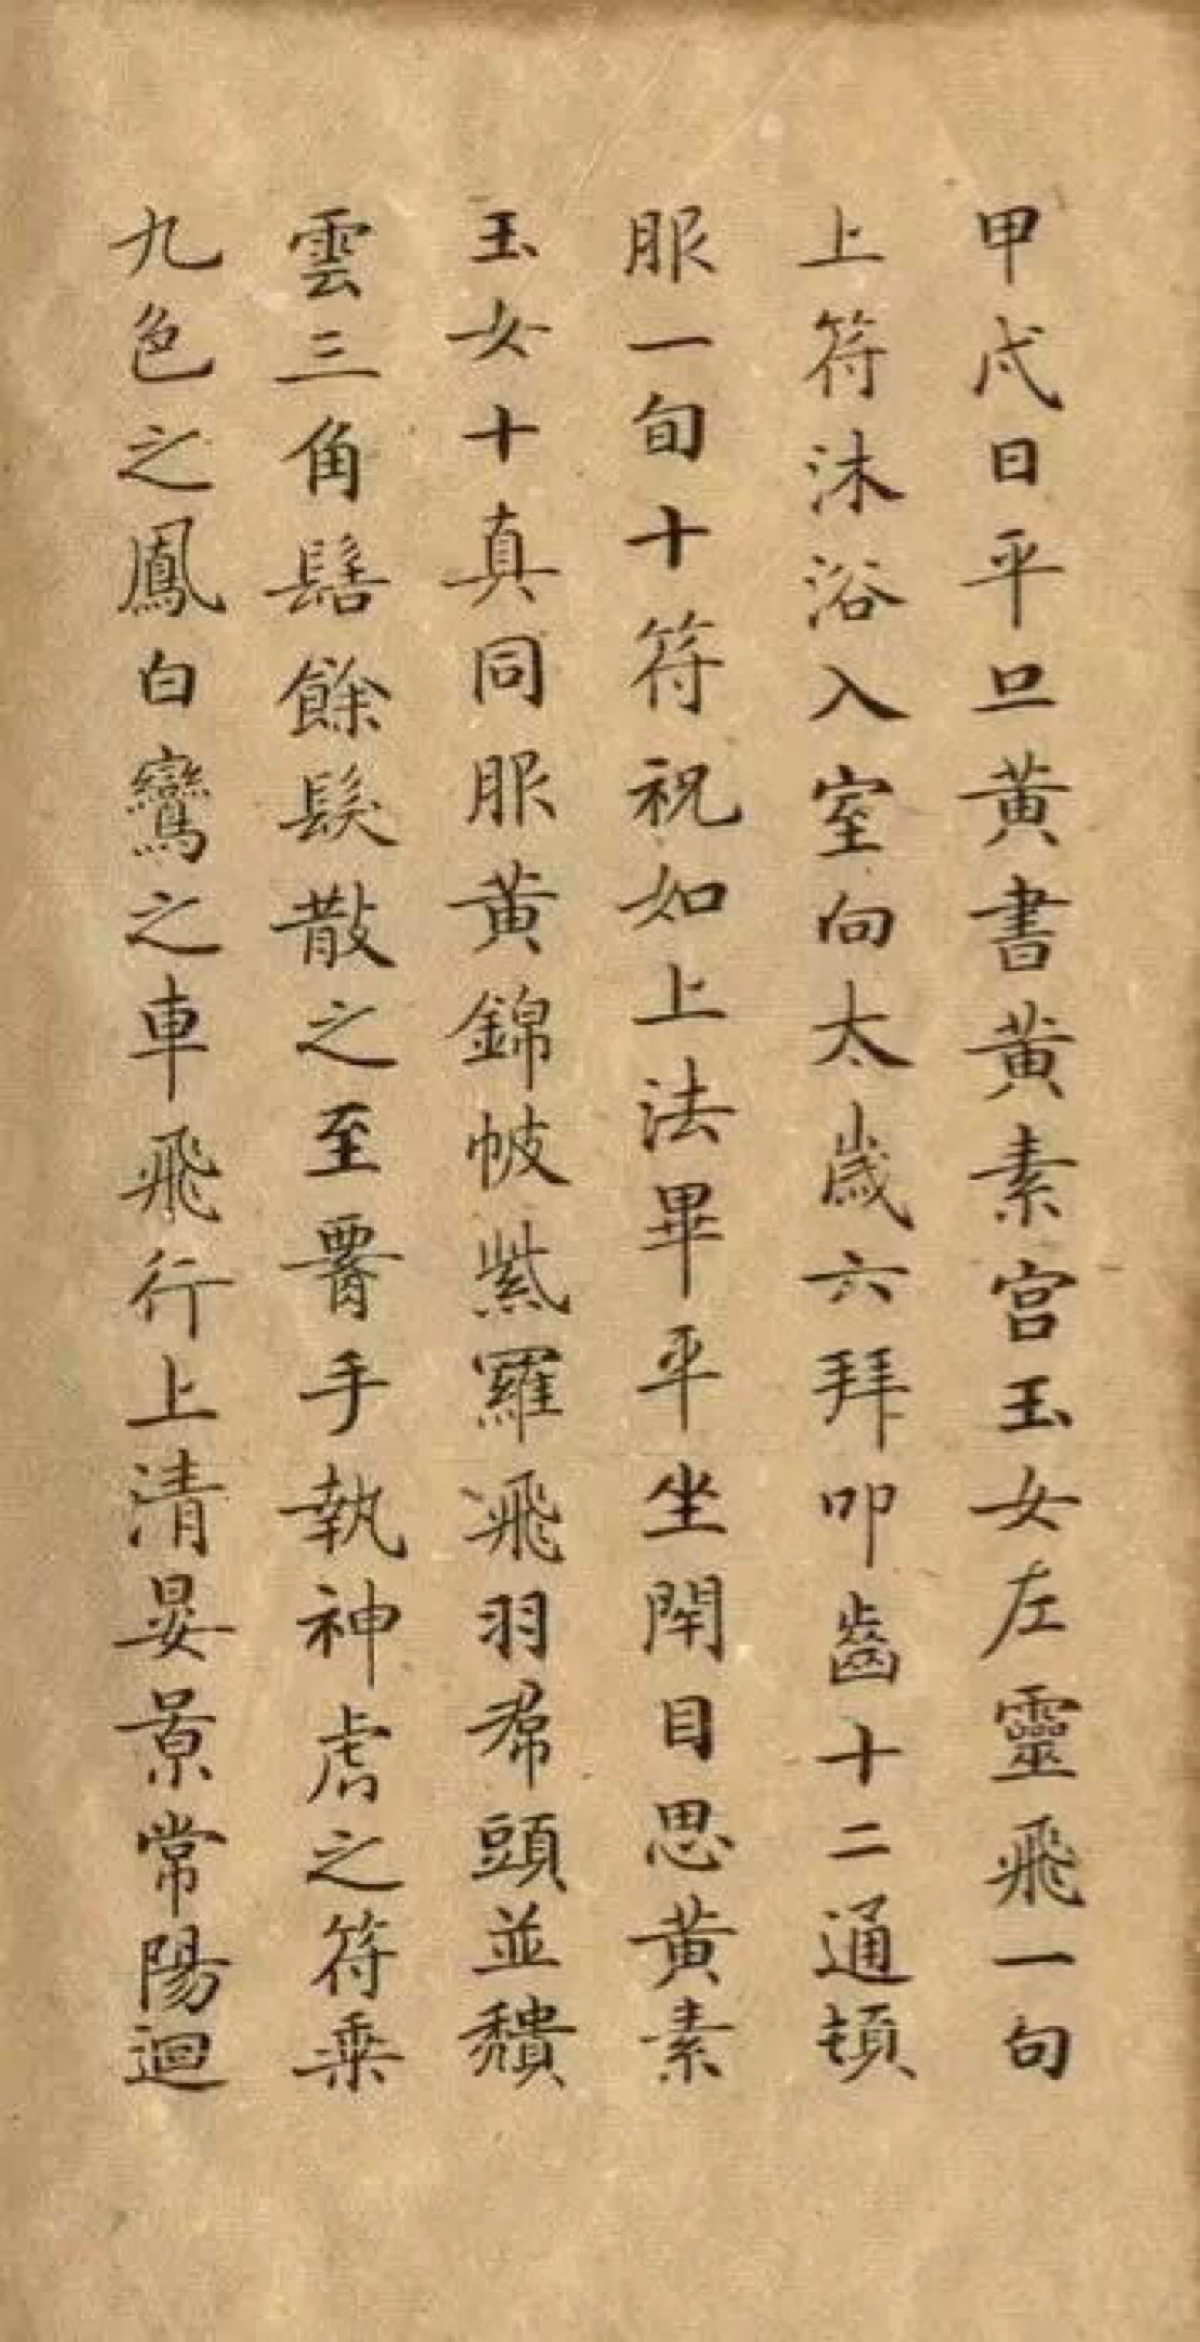 甲戌日平旦黄書黄素宫玉女左靈飛一旬
上符沐浴入室向太歲六拜叩齒十二通頓
服一旬十符祝如上法畢平坐閇目思黄素
玉女十真同服黄錦帔紫羅飛羽帬頭並頹
雲三角髻餘髮散之至署手執神虎之符乘
九色之鳳白鸞之車飛行上清晏景常陽迴